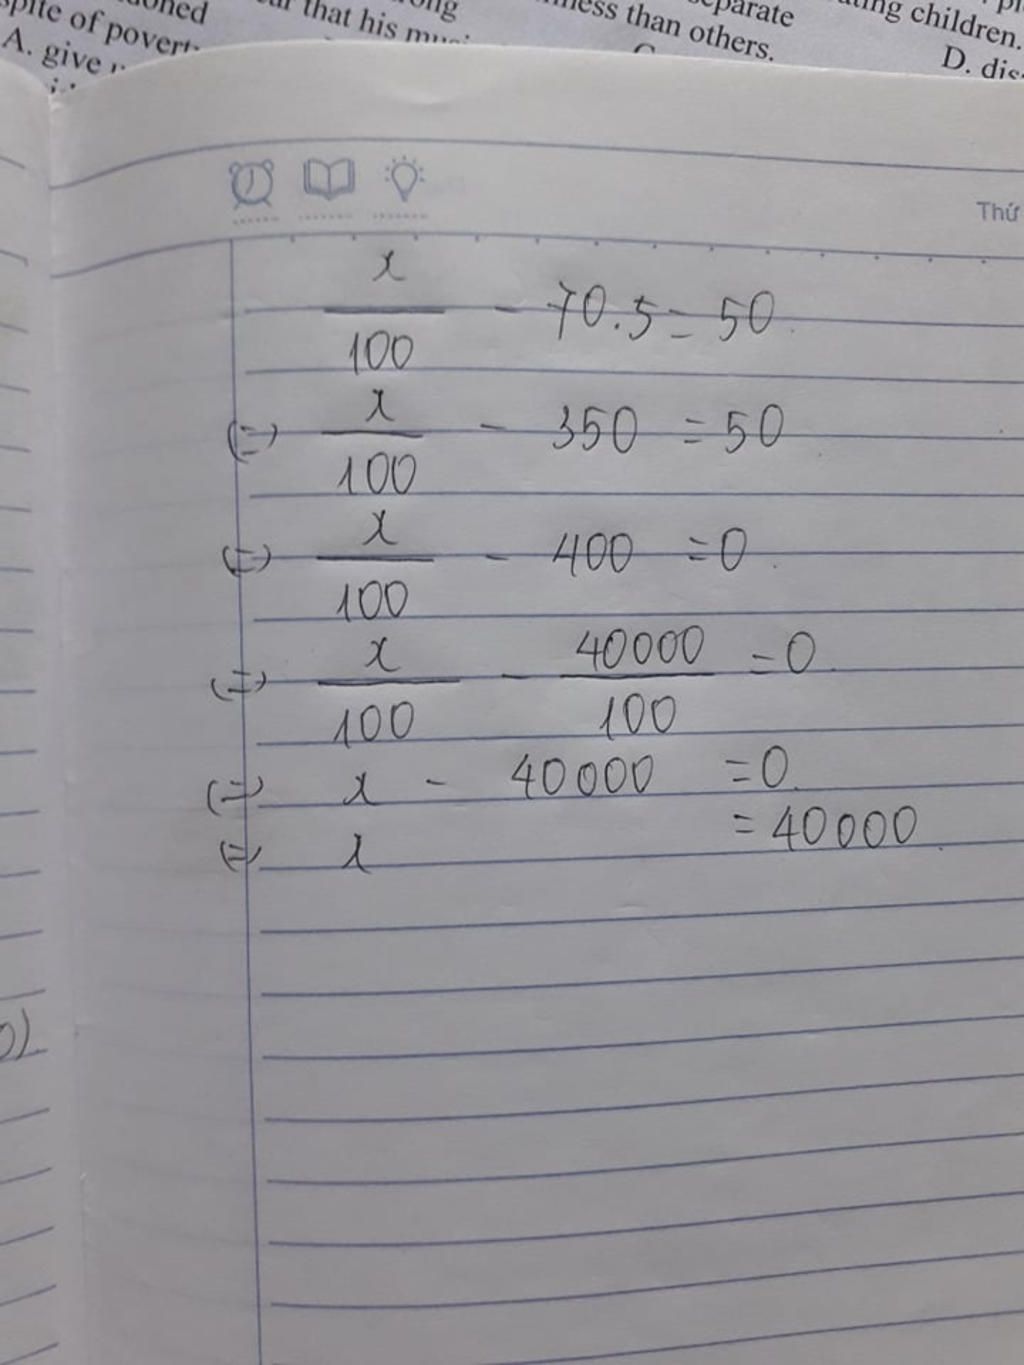 spite of
A. give
that his
ness than others.
separate
children.
D. dis
Thứ
x/100 - 70.5 = 50
(=) x/100 - 350 = 50
(=) x/100 - 400 = 0
(=) x/100 - 40000/100 = 0
(=) x - 40000 = 0
(=) x = 40000